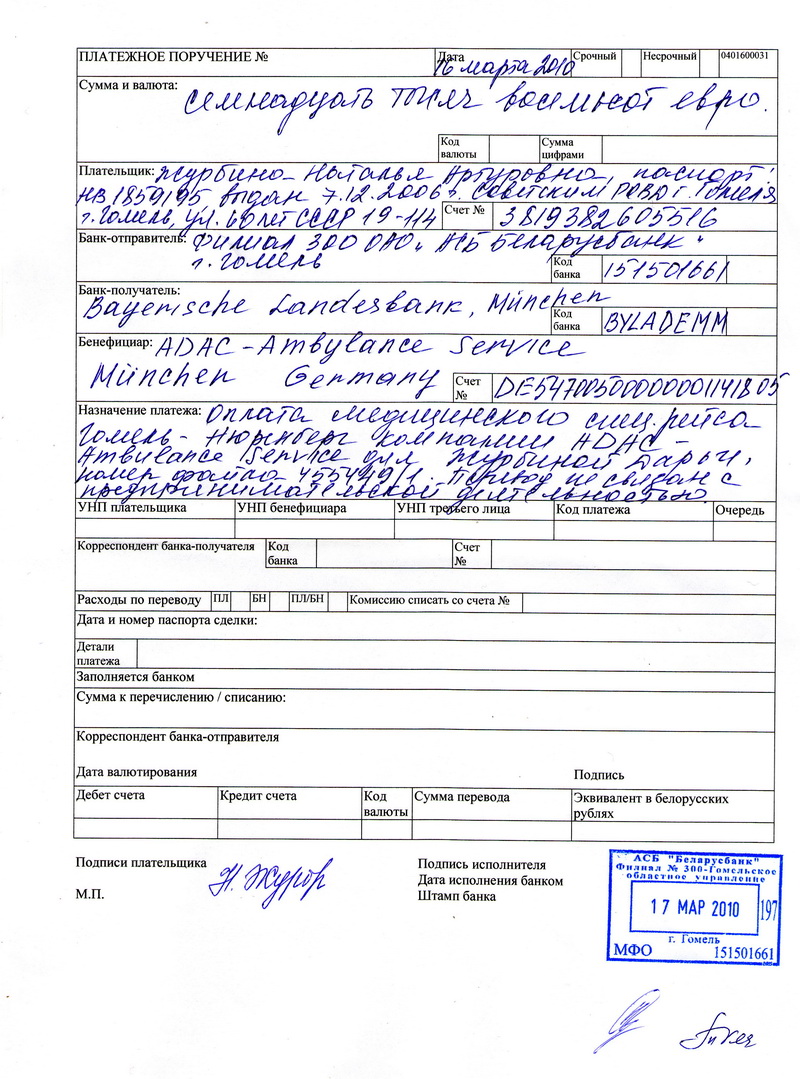 ПЛАТЕЖНОЕ ПОРУЧЕНИЕ № Дата 16 марта 2010 Срочный Несрочный 0401600031
Сумма и валюта: семнадцать тысяч восемьсот евро.
Код валюты Сумма цифрами
Плательщик: Журбина Наталья Артуровна, паспорт:
НВ 1859195 выдан 7.12.2006 г. Советским РОВД г. Гомеля
г. Гомель, ул. 60 лет СССР 19-114 Счет № 3819382605516
Банк-отправитель: Филиал 300 ОАО „АСБ Беларусбанк"
г. Гомель Код банка 151501661
Банк-получатель:
Bayerische Landesbank, München
Код банка BYLADEMM
Бенефициар: ADAC-Ambylance Service
München Germany Счет № DE54700500000001141805
Назначение платежа: Оплата медицинского спец.рейса
Гомель- Нюрнберг компании ADAC-
Ambulance Service для Журбиной Дарьи,
номер файла 4554291. Перевод не связан с
предпринимательской деятельностью.
УНП плательщика УНП бенефициара УНП третьего лица Код платежа Очередь
Корреспондент банка-получателя Код банка Счет №
Расходы по переводу ПЛ БН ПЛ/БН Комиссию списать со счета №
Дата и номер паспорта сделки:
Детали платежа
Заполняется банком
Сумма к перечислению / списанию:
Корреспондент банка-отправителя
Дата валютирования Подпись
Дебет счета Кредит счета Код валюты Сумма перевода Эквивалент в белорусских рублях
Подписи плательщика Подпись исполнителя
Дата исполнения банком
М.П. Штамп банка
АСБ "Беларусбанк"
Филиал № 300-Гомельское
областное управление
17 МАР 2010 197
г. Гомель
МФО 151501661